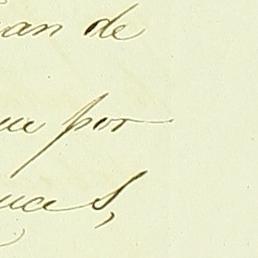 an de
ue por
uas,